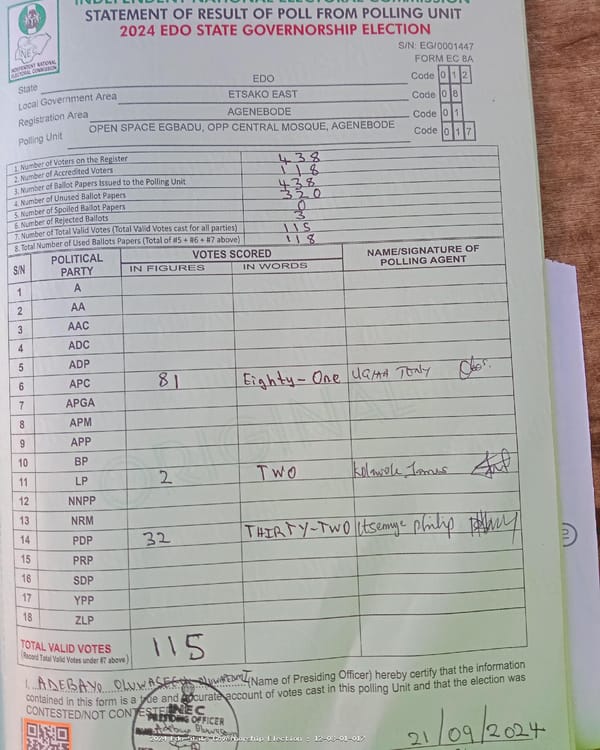 INDEPENDENT NATIONAL ELECTORAL COMMISSION
STATEMENT OF RESULT OF POLL FROM POLLING UNIT
2024 EDO STATE GOVERNORSHIP ELECTION
INDEPENDENT NATIONAL ELECTORAL COMMISSION
S/N: EG/0001447
FORM EC 8A
State EDO Code 0 1 2
Local Government Area ETSAKO EAST Code 0 8
Registration Area AGENEBODE Code 0 1
Polling Unit OPEN SPACE EGBADU, OPP CENTRAL MOSQUE, AGENEBODE Code 0 1 7
1. Number of Voters on the Register 438
2. Number of Accredited Voters 118
3. Number of Ballot Papers Issued to the Polling Unit 438
4. Number of Unused Ballot Papers 320
5. Number of Spoiled Ballot Papers 0
6. Number of Rejected Ballots 3
7. Number of Total Valid Votes (Total Valid Votes cast for all parties) 115
8. Total Number of Used Ballots Papers (Total of #5 + #6 + #7 above) 118
S/N POLITICAL PARTY VOTES SCORED NAME/SIGNATURE OF POLLING AGENT
IN FIGURES IN WORDS
1 A
2 AA
3 AAC
4 ADC
5 ADP
6 APC 81 Eighty-One UGHA TONY
7 APGA
8 APM
9 APP
10 BP
11 LP 2 TWO Kolawole James
12 NNPP
13 NRM
14 PDP 32 THIRTY-TWO Itsemye philip
15 PRP
16 SDP
17 YPP
18 ZLP
ORIGINAL
TOTAL VALID VOTES 115
(Record Total Valid Votes under #7 above)
I, ADEBAYO OLUWASEGUN (Name of Presiding Officer) hereby certify that the information
contained in this form is a true and accurate account of votes cast in this polling Unit and that the election was
CONTESTED/NOT CONTESTED
INEC
PRESIDING OFFICER
21/09/2024
2024 Edo State Governorship Election - 12-08-01-017